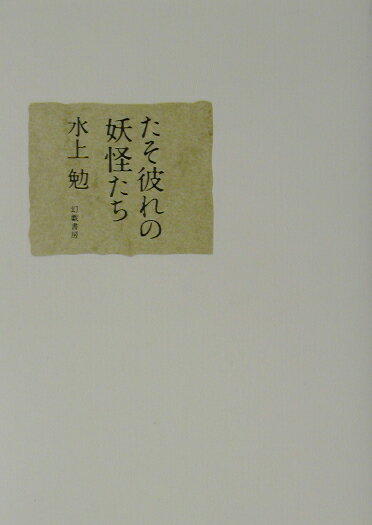 たそ彼れの
妖怪たち
水上 勉
幻戯書房